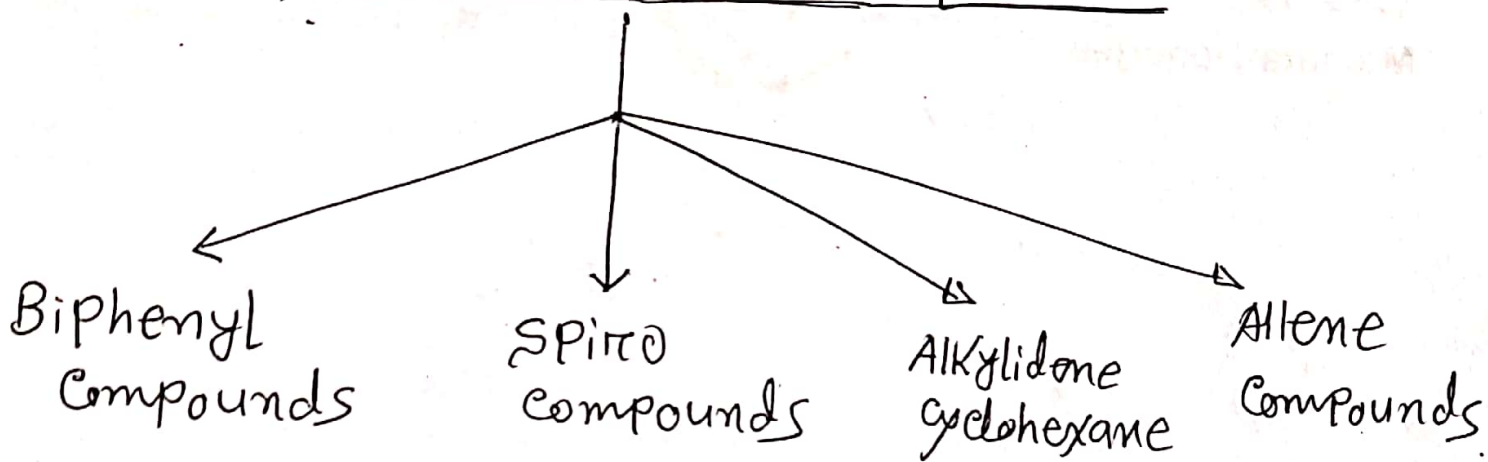 Biphenyl
Compounds
Spiro
Compounds
Alkylidene
Cyclohexane
Allene
Compounds.